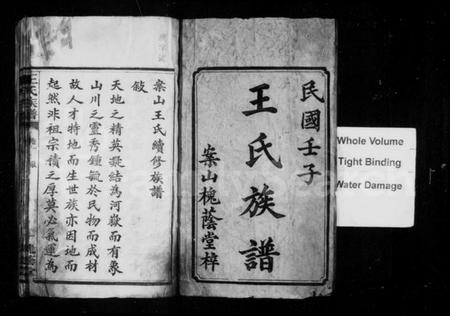 民國壬子
王氏族譜
案山槐蔭堂梓
案山王氏續修族譜
敍
天地之精英凝結為河嶽而有象
山川之靈秀鍾毓於民物而成材
故人才特地而生世族亦因地而
起然非祖宗積之厚莫必氣運為
王氏族譜
Whole Volume
Tight Binding
Water Damage